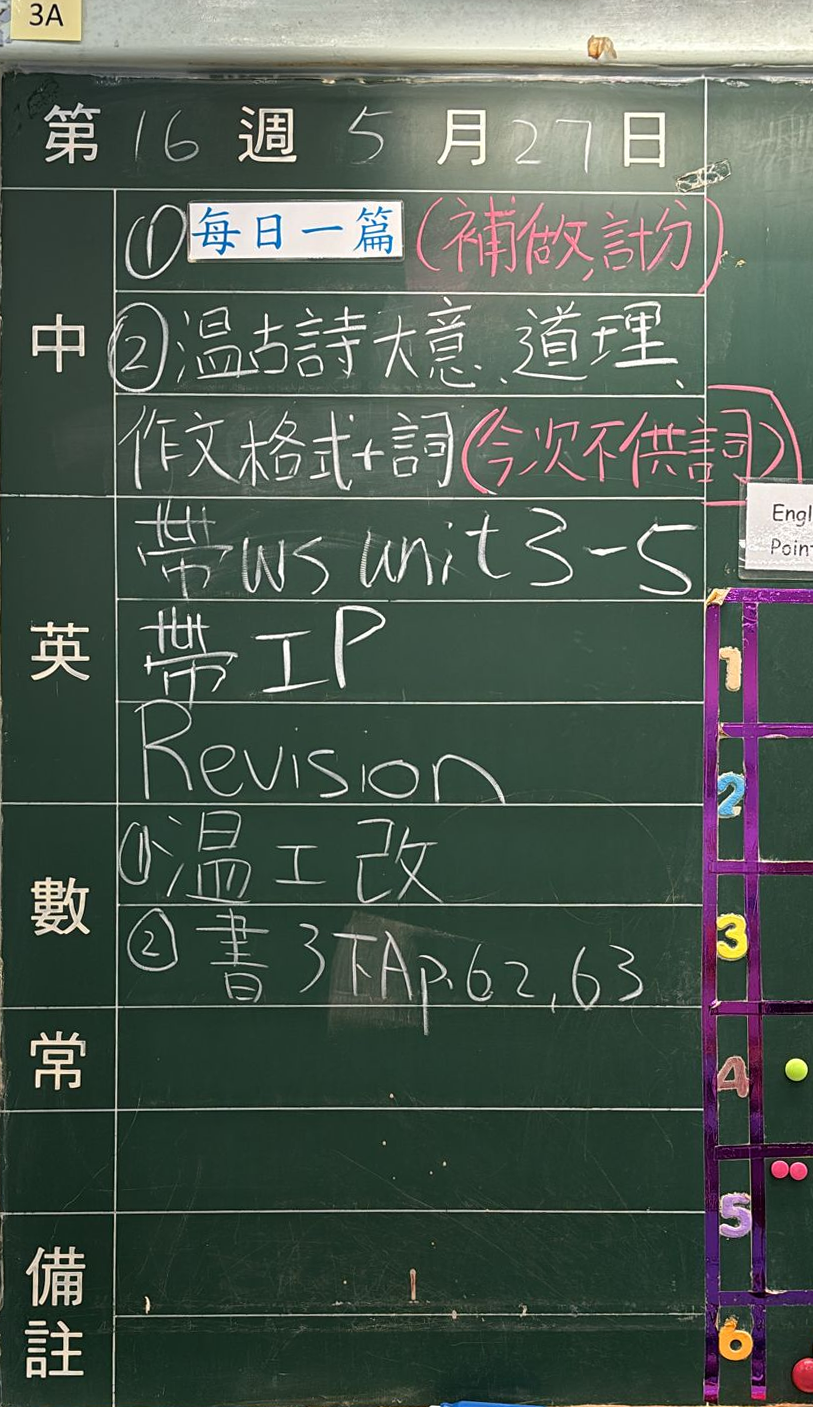 3A
第 16 週 5 月 27 日
中
① 每日一篇 (補做,計分)
② 温古詩大意、道理、
作文格式+詞 (今次不供詞)
英
帶 WS unit 3-5
帶 IP
Revision
數
① 温工改
② 書 3下A p.62, 63
常
備註
Engl
Poin
1
2
3
4
5
6